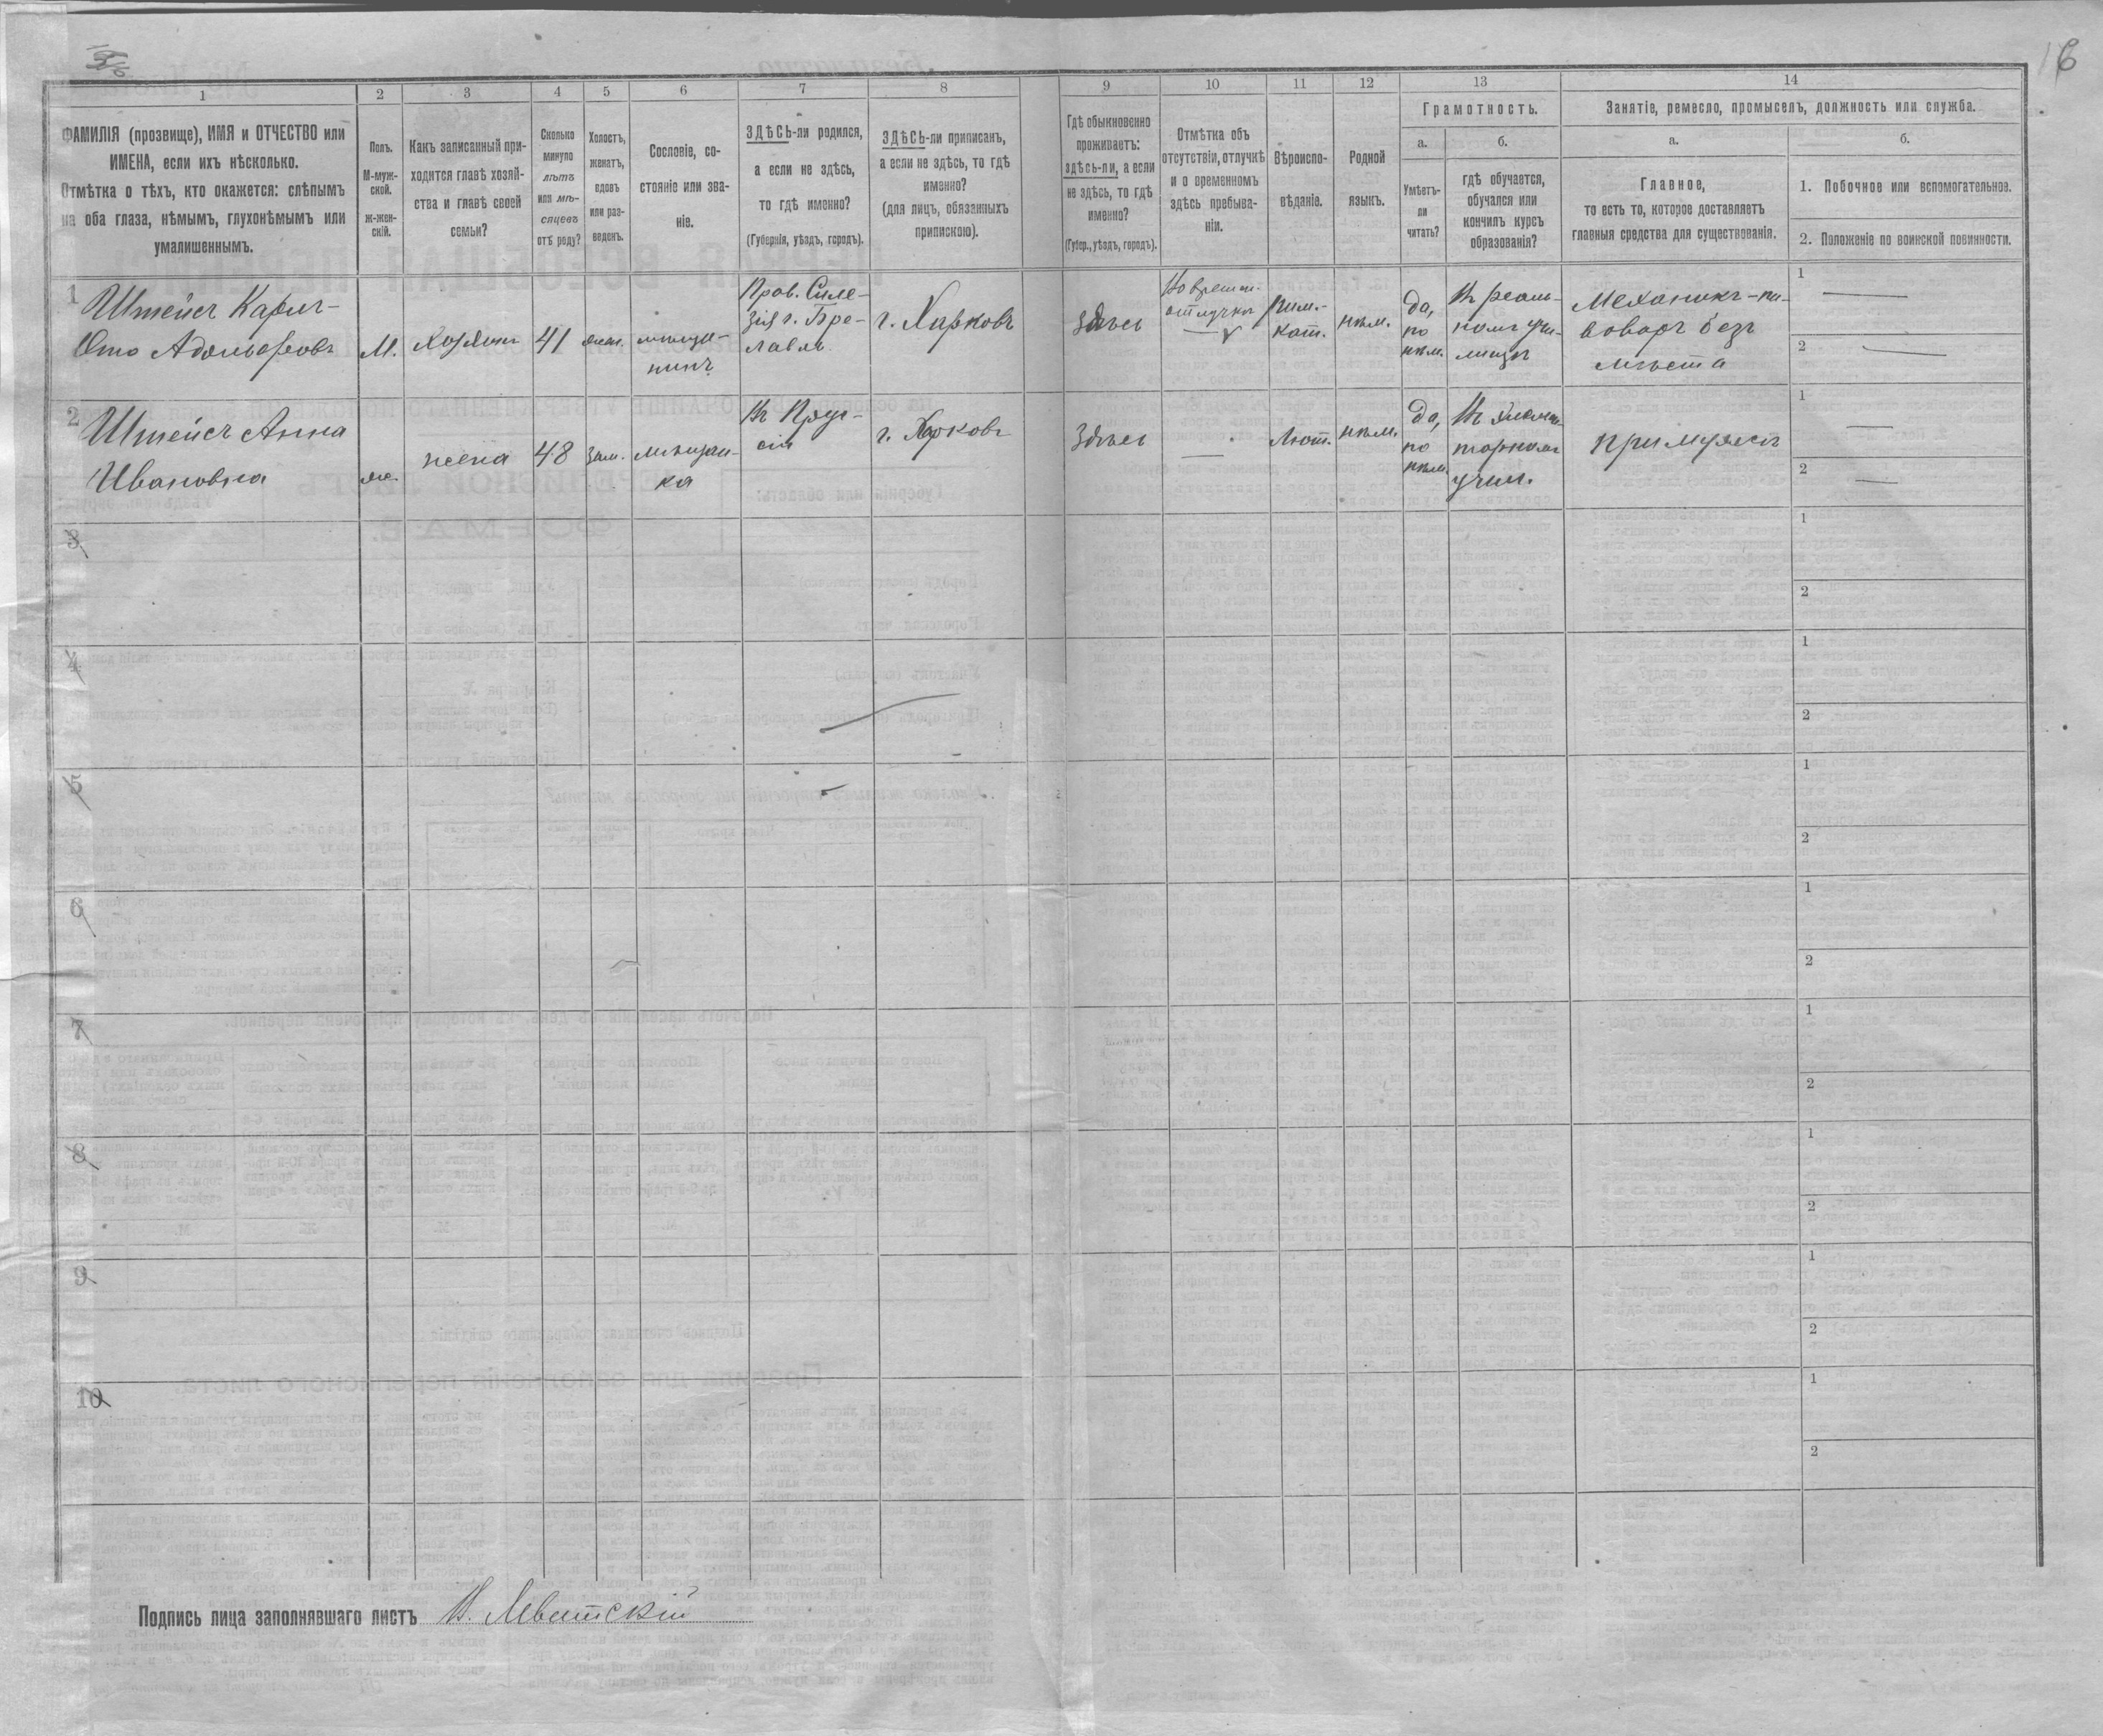 1
2
3
4
5
6
7
8
9
10
11
12
13
14
ФАМИЛІЯ (прозвище), ИМЯ и ОТЧЕСТВО или
ИМЕНА, если ихъ нѣсколько.
Отмѣтка о тѣхъ, кто окажется: слѣпымъ
на оба глаза, нѣмымъ, глухонѣмымъ или
умалишеннымъ.
Полъ.
М-муж-
ской.
ж-жен-
скій.
Какъ записанный при-
ходится главѣ хозяй-
ства и главѣ своей
семьи?
Сколько
минуло
лѣтъ
или мѣ-
сяцевъ
отъ роду?
Холостъ,
женатъ,
вдовъ
или раз-
веденъ.
Сословіе, со-
стояніе или зва-
ніе.
ЗДѢСЬ-ли родился,
а если не здѣсь,
то гдѣ именно?
(Губернія, уѣздъ, городъ).
ЗДѢСЬ-ли приписанъ,
а если не здѣсь, то гдѣ
именно?
(для лицъ, обязанныхъ
припискою).
Гдѣ обыкновенно
проживаетъ:
здѣсь-ли, а если
не здѣсь, то гдѣ
именно?
(Губер., уѣздъ, городъ).
Отмѣтка объ
отсутствіи, отлучкѣ
и о временномъ
здѣсь пребыва-
ніи.
Вѣроиспо-
вѣданіе.
Родной
языкъ.
Грамотность.
а.
Умѣетъ-
ли
читать?
б.
гдѣ обучается,
обучался или
кончилъ курсъ
образованія?
Занятіе, ремесло, промыселъ, должность или служба.
а.
Главное,
то есть то, которое доставляетъ
главныя средства для существованія.
б.
1. Побочное или вспомогательное.
2. Положеніе по воинской повинности.
1
Штейсъ Карлъ-
Ото Адольфовъ
М.
Хозяинъ
41
жен.
мѣща-
нинъ
Пров. Силе-
зія г. Бре-
лавль
г. Харковъ
здѣсь
Во времен.
отлучкѣ
Рим.-
кат.
нѣм.
да,
по
нѣм.
Въ реаль-
номъ учи-
лищѣ
Механикъ-пи-
воваръ безъ
мѣста
1
2
2
Штейсъ Анна
Ивановна
ж.
жена
48
зам.
мѣщан-
ка
Въ Прус-
сіи
г. Харковъ
здѣсь
Лют.
нѣм.
да,
по
нѣм.
Въ элемен-
тарномъ
учил.
при мужѣ
1
2
3
1
2
4
1
2
5
1
2
6
1
2
7
1
2
8
1
2
9
1
2
10
1
2
Подпись лица заполнявшаго листъ В. Левитскій